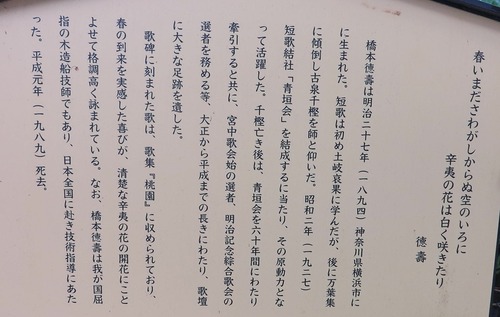 春いまださわがしからぬ空のいろに
辛夷の花は白く咲きたり
徳壽
橋本徳壽は明治二十七年（一八九四）神奈川県横浜市に
生まれた。短歌は初め土岐哀果に学んだが、後に万葉集
に傾倒し古泉千樫を師と仰いだ。昭和二年（一九二七）
短歌結社「青垣会」を結成するに当たり、その原動力とな
って活躍した。千樫亡き後は、青垣会を六十年間にわたり
牽引すると共に、宮中歌会始の選者、明治記念綜合歌会の
選者を務める等、大正から平成までの長きにわたり、歌壇
に大きな足跡を遺した。
歌碑に刻まれた歌は、歌集『桃園』に収められており、
春の到来を実感した喜びが、清楚な辛夷の花の開花にこと
よせて格調高く詠まれている。なお、橋本徳壽は我が国屈
指の木造船技師でもあり、日本全国に赴き技術指導にあた
った。平成元年（一九八九）死去。